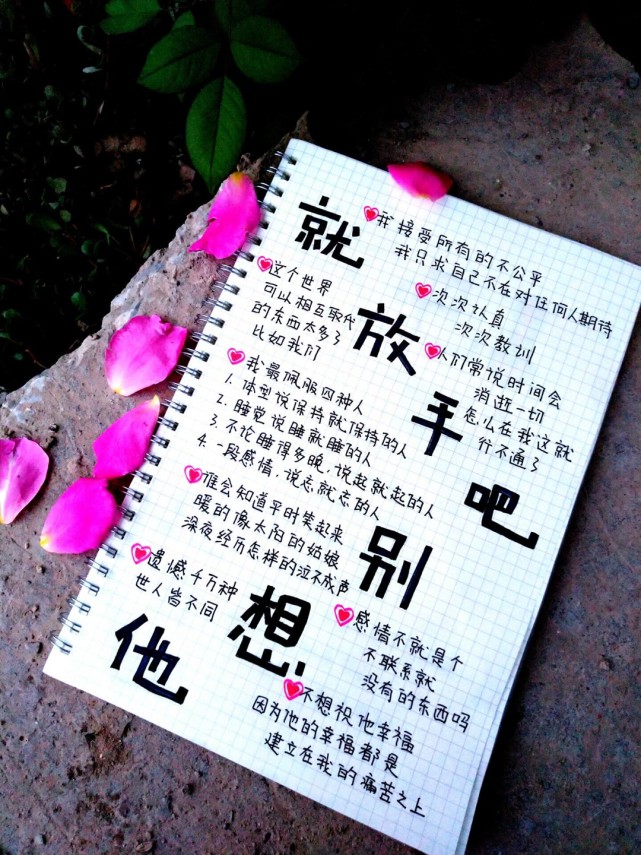 就放手吧
别想他
我接受所有的不公平
我只求自己不在对任何人期待
这个世界
可以相互取代
的东西太多了
比如我们
次次认真
次次教训
人们常说时间会
消逝一切
怎么在我这就
行不通了
我最佩服四种人
1. 体型说保持就保持的人
2. 睡觉说睡就睡的人
3. 不论睡得多晚,说起就起的人
4. 一段感情,说忘就忘的人
谁会知道平时笑起来
暖的像太阳的姑娘
深夜经历怎样的泣不成声
遗憾千万种
世人皆不同
感情不就是个
不联系就
没有的东西吗
不想祝他幸福
因为他的幸福都是
建立在我的痛苦之上